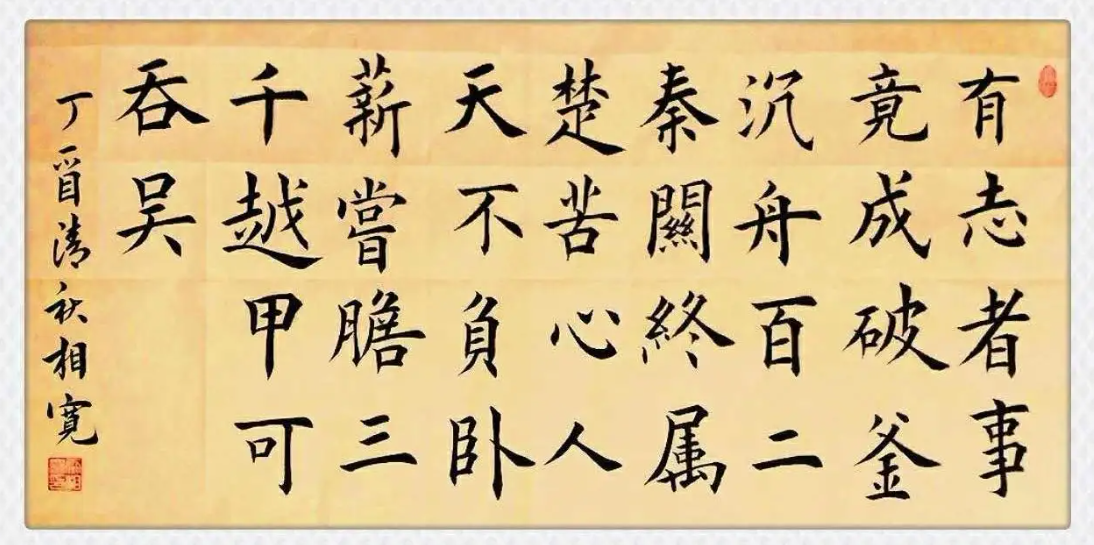 有志者事
竟成破釜
沉舟百二
秦關終属
楚苦心人
天不負卧
薪嘗膽三
千越甲可
吞吴
丁酉清秋相寬